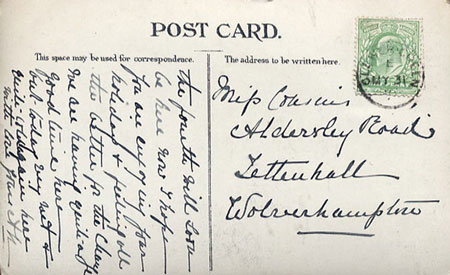 POST CARD.
This space may be used for correspondence.
The address to be written here.
MY 31
The fourth will soon
be here now I hope
you are enjoying your
holiday & feeling all
the better for the change
We are having quite a
Good time here
but today very wet &
quite cold again here
with love from
Miss Cousins
Aldersley Road
Tettenhall
Wolverhampton